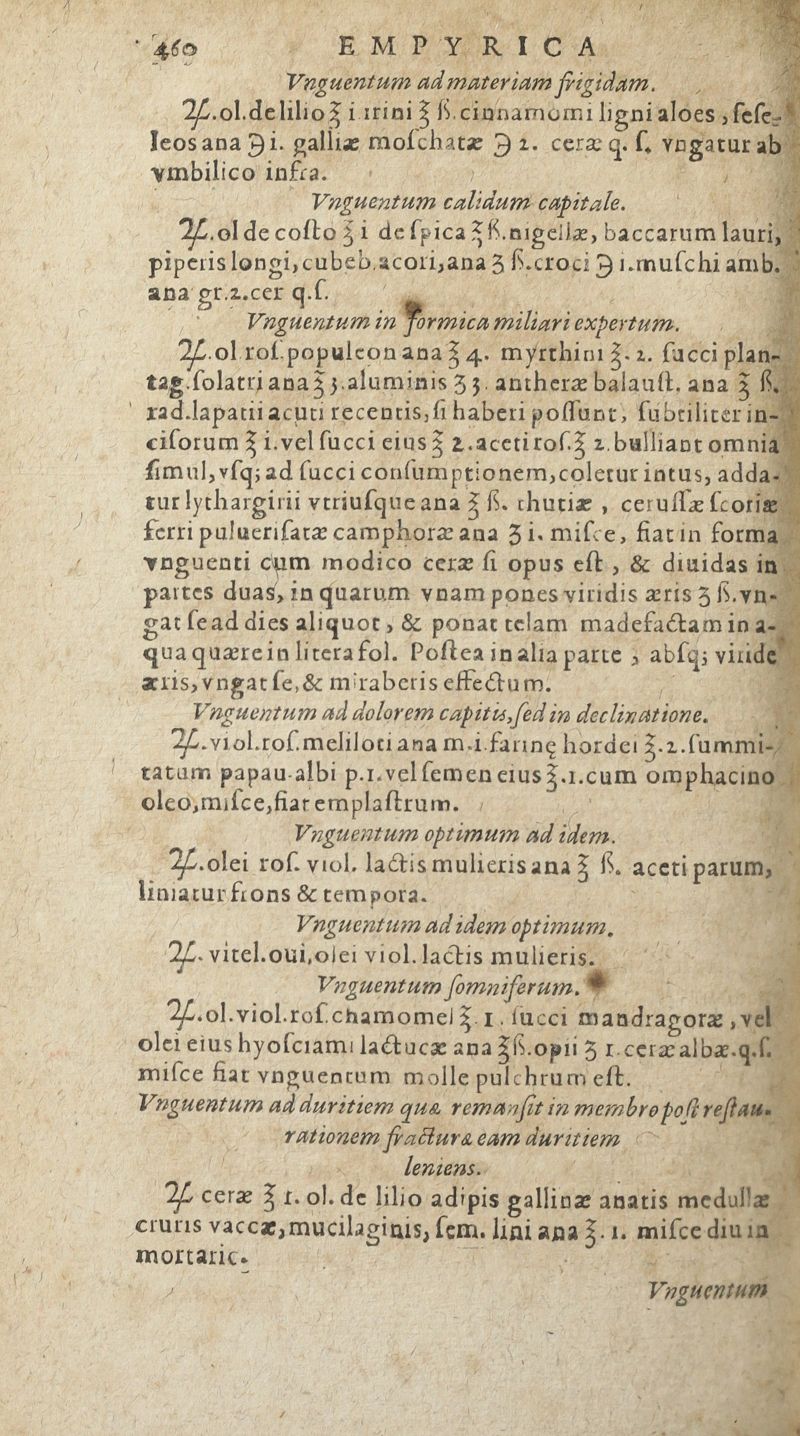 460 EMPYRICA
Vnguentum ad materiam frigidam.
℞.ol.de lilio ℥ i irini ℥ ß.cinnamomi ligni aloes, ſeſe-
leos ana ℈ i. galliæ moſchatæ ℈ 2. ceræ q. ſ. vngatur ab
vmbilico infra.
Vnguentum calidum capitale.
℞.ol de coſto ℥ i de ſpica ℥ ß.nigellæ, baccarum lauri,
piperis longi, cubeb.acori, ana ʒ ß.croci ℈ 1.muſchi amb.
ana gr.2.cer q.ſ.
Vnguentum in formica miliari expertum.
℞.ol roſ.populeon ana ℥ 4. myrthini ℥.2. ſucci plan-
tag.ſolatri ana ℥ 3.aluminis ʒ 3. antheræ balauſt. ana ℥ ß.
rad.lapatii acuti recentis, ſi haberi poſſunt, ſubtiliter in-
ciſorum ℥ i.vel ſucci eius ℥ 2.aceti roſ.℥ 2.bulliant omnia
ſimul, vſq; ad ſucci conſumptionem, coletur intus, adda-
tur lythargirii vtriuſque ana ℥ ß. thutiæ, ceruſſæ ſcoriæ
ferri puluerifatæ camphoræ ana ʒ i. miſce, fiat in forma
vnguenti cum modico ceræ ſi opus eſt, & diuidas in
partes duas, in quarum vnam pones viridis æris ʒ ß.vn-
gat ſe ad dies aliquot, & ponat telam madefactam in a-
qua quære in litera fol. Poſtea in alia parte, abſq; viride
æris, vngat ſe, & miraberis effectum.
Vnguentum ad dolorem capitis, ſed in declinatione.
℞.viol.roſ.meliloti ana m.i.farinę hordei ℥.2.ſummi-
tatum papau.albi p.1.vel ſemen eius ℥.1.cum omphacino
oleo, miſce, fiat emplaſtrum.
Vnguentum optimum ad idem.
℞.olei roſ. viol. lactis mulieris ana ℥ ß. aceti parum,
liniatur frons & tempora.
Vnguentum ad idem optimum.
℞. vitel.oui, olei viol. lactis mulieris.
Vnguentum ſomniferum.
℞.ol.viol.roſ.chamomel ℥.1. ſucci mandragoræ, vel
olei eius hyoſciami lactucæ ana ℥ß.opii ʒ 1.ceræ albæ.q.ſ.
miſce fiat vnguentum molle pulchrum eſt.
Vnguentum ad duritiem quæ remanſit in membro poſt reſtau-
rationem fracturæ eam duritiem
leniens.
℞ ceræ ℥ 1. ol. de lilio adipis gallinæ anatis medullæ
cruris vaccæ, mucilaginis, ſem. lini ana ℥. 1. miſce diu in
mortario.
Vnguentum